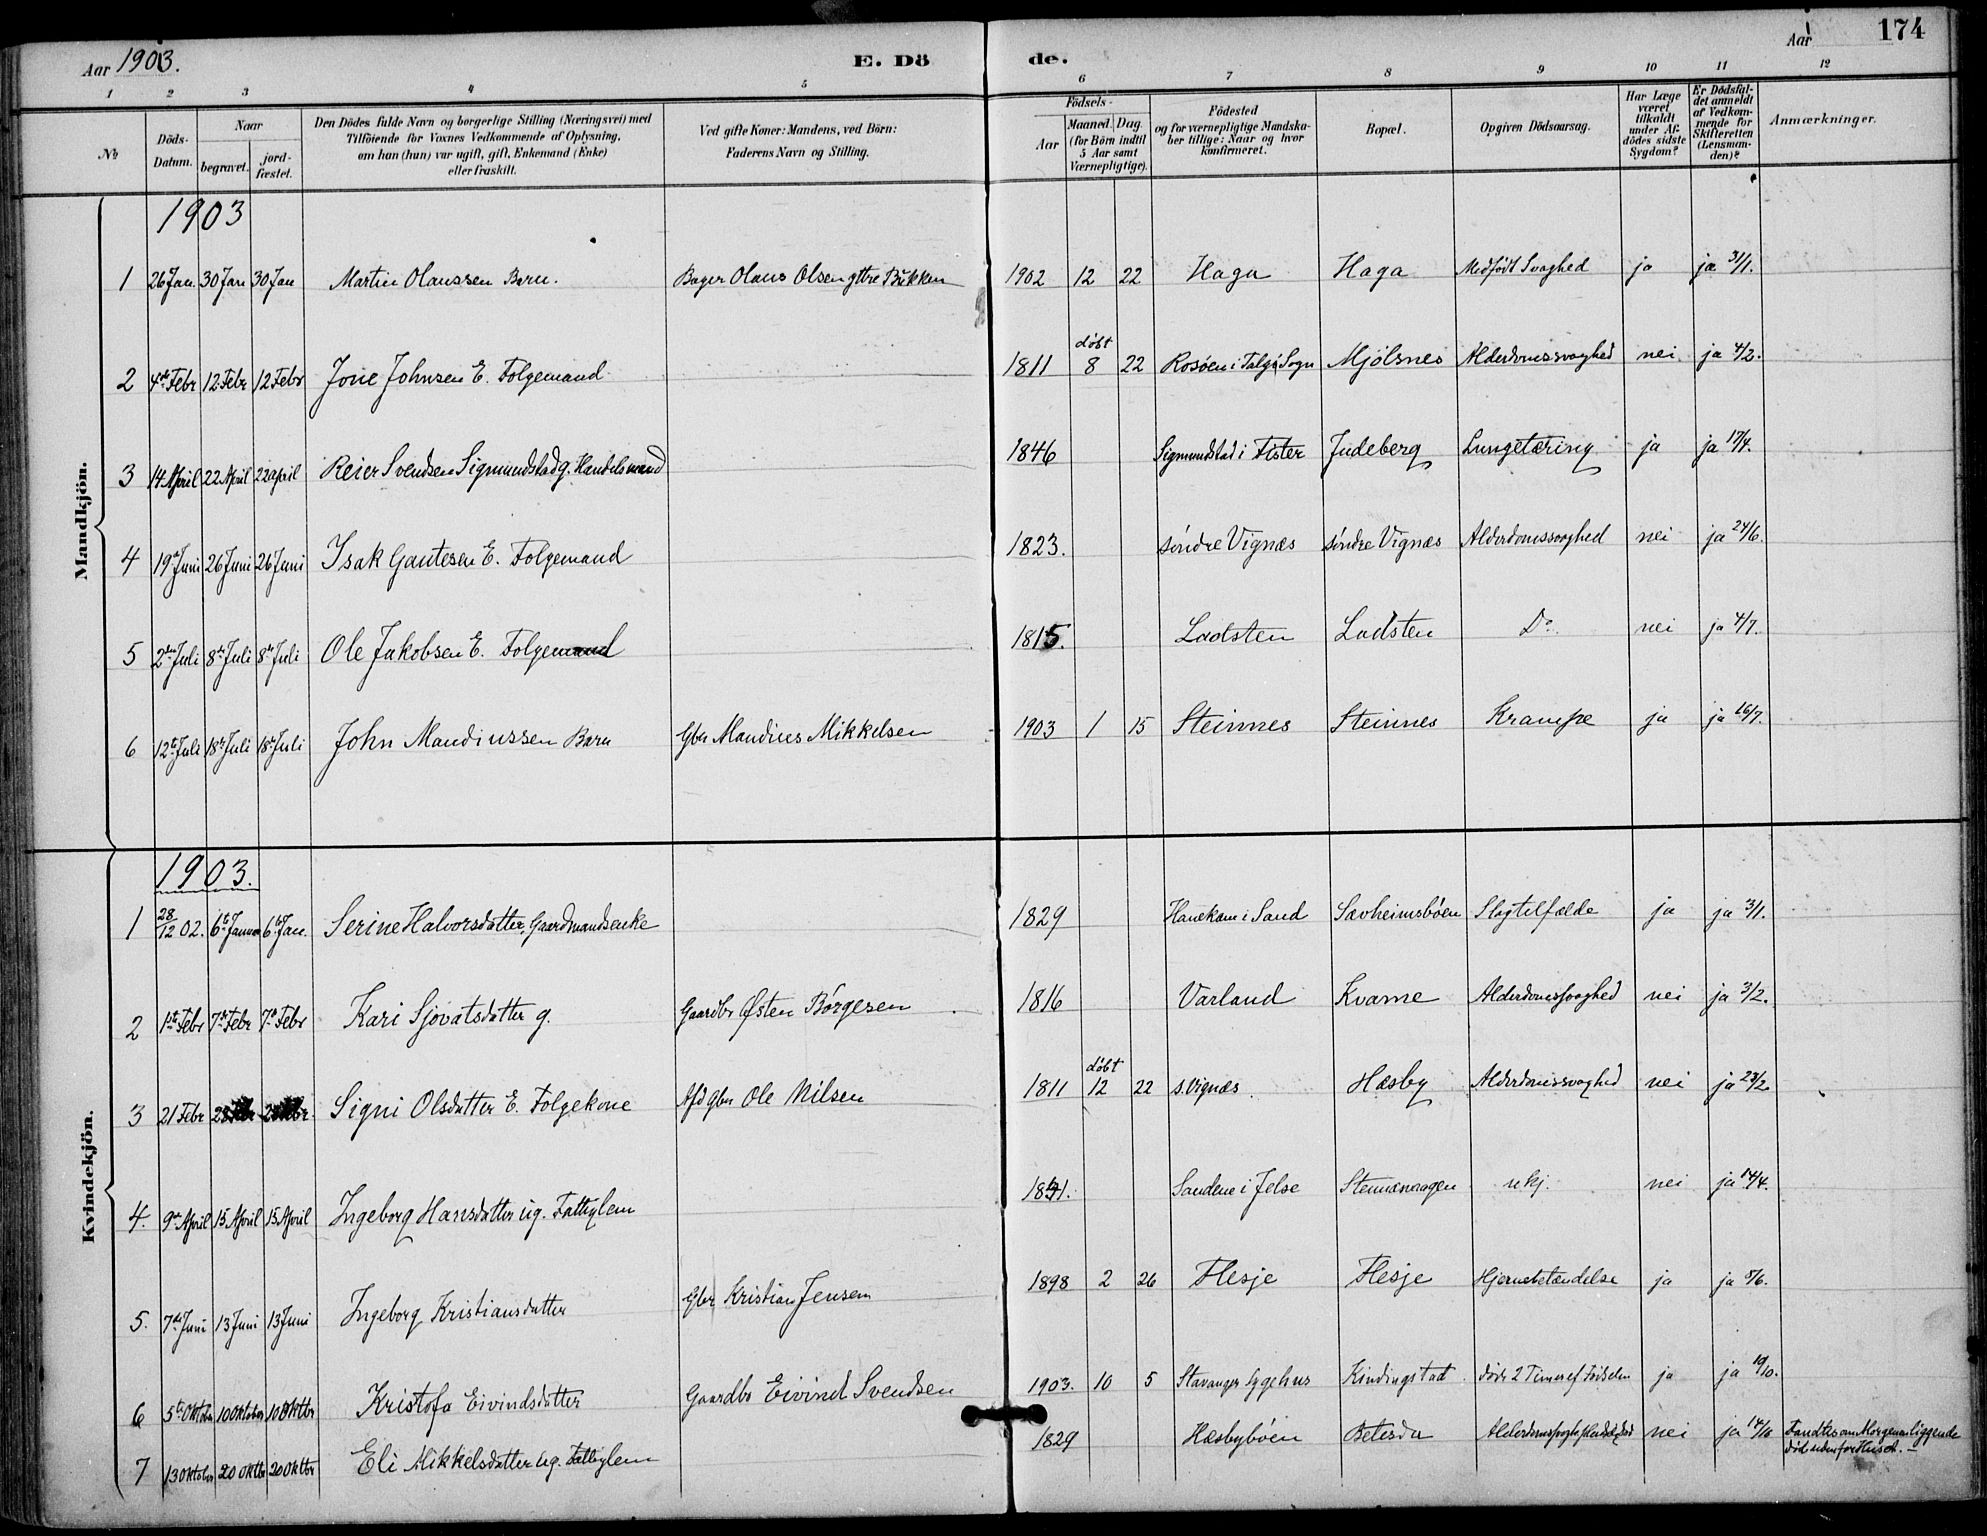 Aar 1903. E. Dö de. Aar 174
1 2 3 4 5 6 7 8 9 10 11 12
No Döds-Datum. Naar begravet. jord-fæstet. Den Dödes fulde Navn og borgerlige Stilling (Næringsvei) med Tilföiende for Voxnes Vedkommende af Oplysning, om han (hun) var ugift, gift, Enkemand (Enke) eller fraskilt. Ved gifte Koner: Mandens, ved Börn: Faderens Navn og Stilling. Födsels- Aar Maaned. Dag. (for Börn indtil 5 Aar samt Værnepligtige). Födested og for værnepligtige Mandskaber tillige: Naar og hvor konfirmeret. Bopæl. Opgiven Dödsaarsag. Har Læge været tilkaldt under Afdödes sidste Sygdom? Er Dödsfaldet anmeldt af Vedkommende for Skifteretten (Lensmanden)? Anmærkninger.
Mandkjön.
1903
1 26 Jan. 30 Jan 30 Jan Martin Olaussen Barn. Bager Olaus Olsen yttre Bukken 1902 12 22 Haga Haga Medfødt Svaghed ja ja 31/1.
2 4de Febr 12 Febr 12 Febr Jone Johnsen E. Folgemand 1811 døbt 8 22 Rosøen i Talgø Sogn Mjølsnes Alderdomssvaghed nei ja 4/2.
3 14 April 22 April 22 april Reier Svendsen Sigmundstad g. Handelsmand 1846 Sigmundstad i Fister Judeberg Lungetæring ja ja 17/4.
4 19de Juni 26 Juni 26 Juni Isak Gautesen E. Folgemand 1823. søndre Vignæs søndre Vignæs Alderdomssvaghed nei ja 24/6.
5 2den Juli 8de Juli 8de Juli Ole Jakobsen E. Folgemand 1815. Ladsten Ladsten Do. nei ja 4/7.
6 12te Juli 18de Juli 18de Juli John Mandiussen Barn Gbr Mandius Mikkelsen 1903 1 15 Steinnes Steinnes Krampe ja ja 16/7.
Kvindekjön.
1903.
1 28/12 02. 6te Januar 6te Jan. Serine Halvorsdatter, Gaardmandsenke 1829 Hanekam i Sand Sævheimsbøen Slagtilfælde ja ja 3/1.
2 1ste Febr 7de Febr 7de Febr Kari Sjovatsdatter g. Gaardbr Østen Børgesen 1816 Varland Kvame Alderdomssvaghed nei ja 3/2.
3 21 Febr 28 Febr 28 Febr. Signi Olsdatter E. Folgekone Afd gbr Ole Nilsen 1811 døbt 12 22 s. Vignæs. Hæsby Alderdomssvaghed nei ja 23/2.
4. 9de April 15 April 15 April Ingeborg Hansdatter ug. Fattiglem Sandene i Jelse ukj. nei ja 14/4.
5. 7de Juni 13 Juni 13 Juni Ingeborg Kristiansdatter Gbr Kristian Jensen 1898 2 26 Hesje Hesje Hjernebetændelse ja ja 8/6.
6 5te Oktober 10 Oktober 10 Oktbr Kristofa Eivindsdatter Gaardbr Eivind Svendsen 1903. 10 5 Stavanger Sygehus Kindingstad døde 2 Timer ef Fødselen ja ja 10/10.
7 13 Oktober 20 Oktbr 20 Oktbr Eli Mikkelsdatter ug. Fattiglem 1829 Hæsbybøen Betesda nei ja 14/10 Fandtes om Morgenen liggende død udenfor Huset.